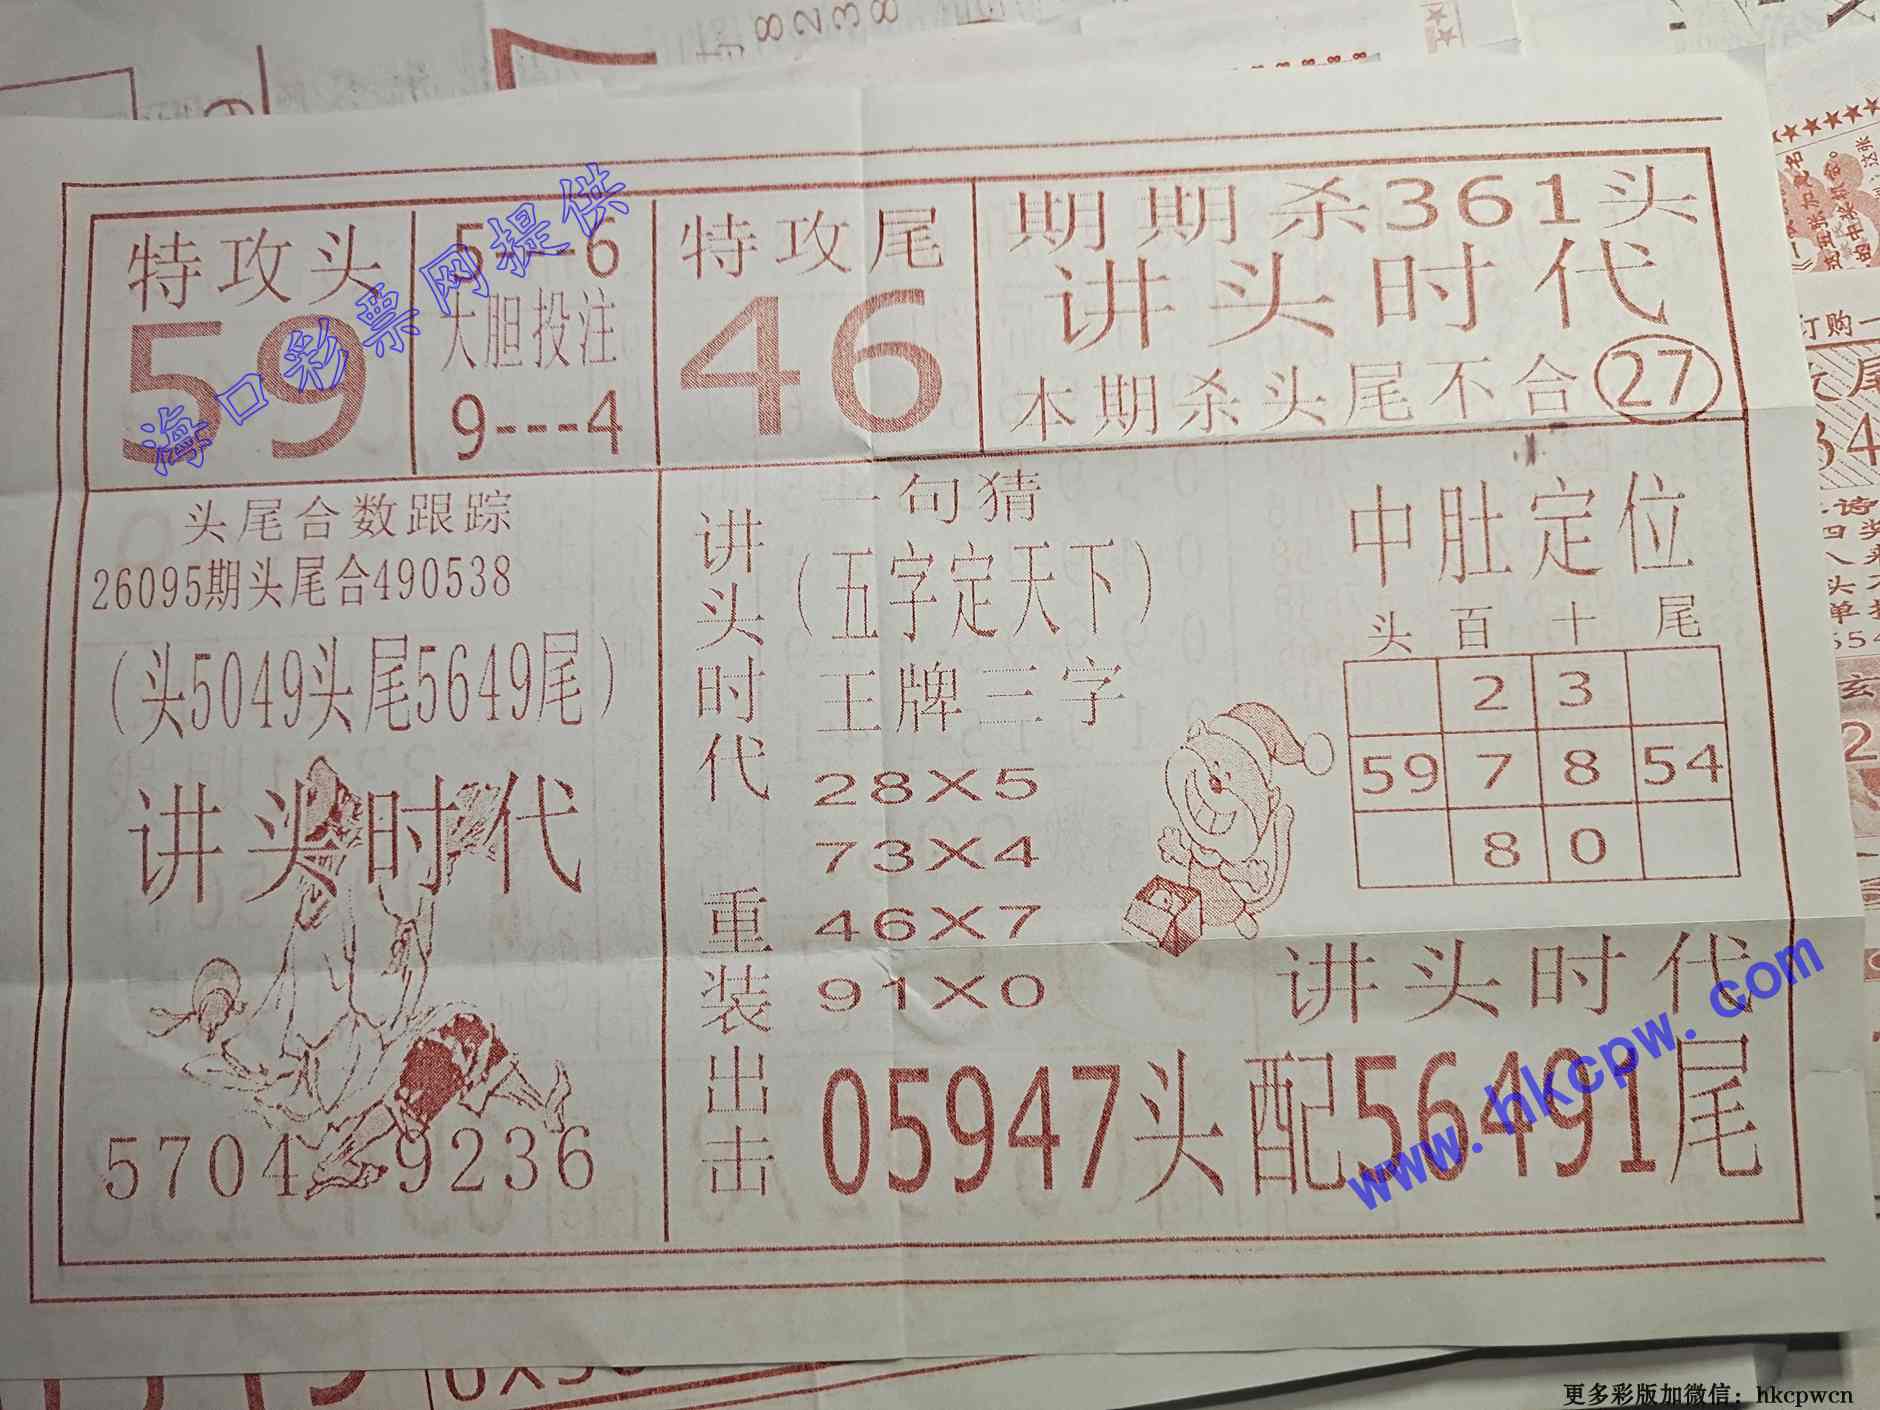 特攻头
59
5---6
大胆投注
9---4
特攻尾
46
期期杀361头
讲头时代
本期杀头尾不合27
头尾合数跟踪
26095期头尾合490538
(头5049头尾5649尾)
讲头时代
5704 9236
讲头时代 重装出击
一句猜
(五字定天下)
王牌三字
28X5
73X4
46X7
91X0
中肚定位
头 百 十 尾
2 3
59 7 8 54
8 0
讲头时代
05947头配56491尾
海口彩票网提供
www.hkcpw.com
更多彩版加微信：hkcpwcn